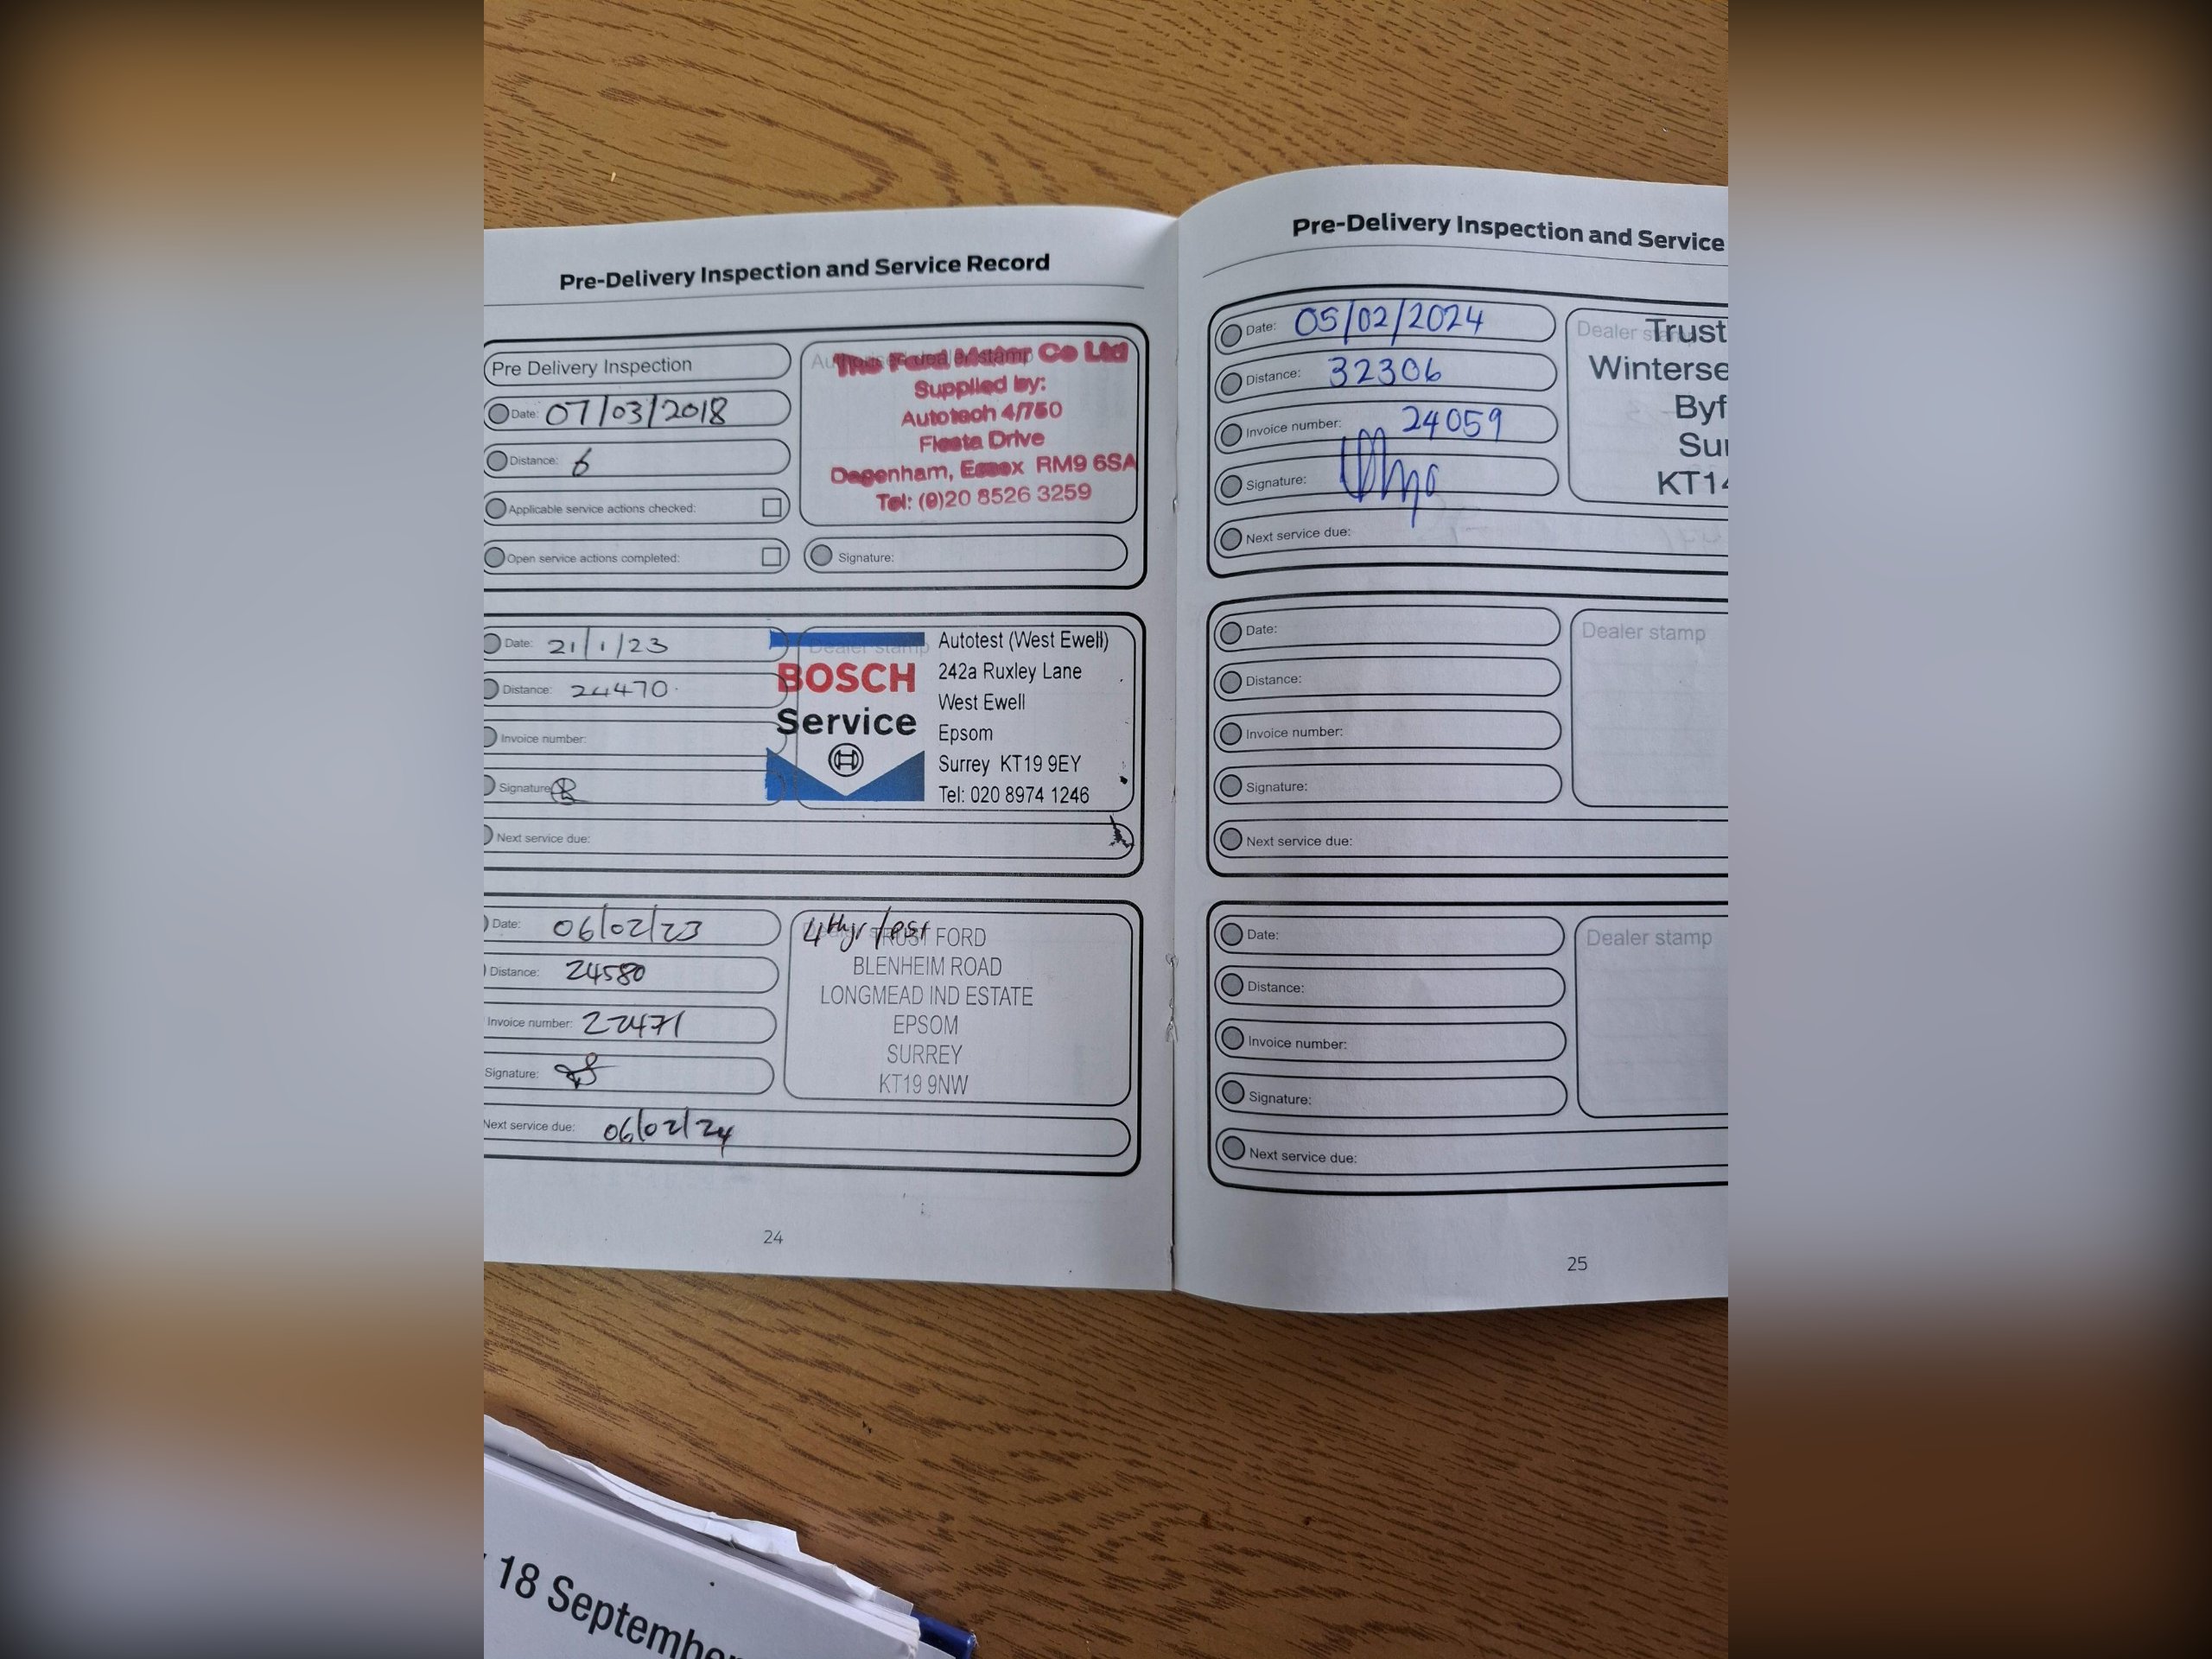 Pre-Delivery Inspection and Service Record
Pre Delivery Inspection
Date: 07/03/2018
Distance: 6
Applicable service actions checked:
Open service actions completed:
The Ford Motor Co Ltd
Supplied by:
Autotech 4/750
Fiesta Drive
Dagenham, Essex RM9 6SA
Tel: (0)20 8526 3259
Signature:
Date: 21/1/23
Distance: 24470
Invoice number:
Signature
Next service due:
Dealer stamp
BOSCH
Service
Autotest (West Ewell)
242a Ruxley Lane
West Ewell
Epsom
Surrey KT19 9EY
Tel: 020 8974 1246
Date: 06/02/23
Distance: 24580
Invoice number: 22471
Signature:
Next service due: 06/02/24
4th yr
TRUST FORD
BLENHEIM ROAD
LONGMEAD IND ESTATE
EPSOM
SURREY
KT19 9NW
24
Pre-Delivery Inspection and Service
Date: 05/02/2024
Distance: 32306
Invoice number: 24059
Signature:
Next service due:
Dealer
Trust
Winterse
Byf
Su
KT14
Date:
Distance:
Invoice number:
Signature:
Next service due:
Dealer stamp
Date:
Distance:
Invoice number:
Signature:
Next service due:
Dealer stamp
25
18 September